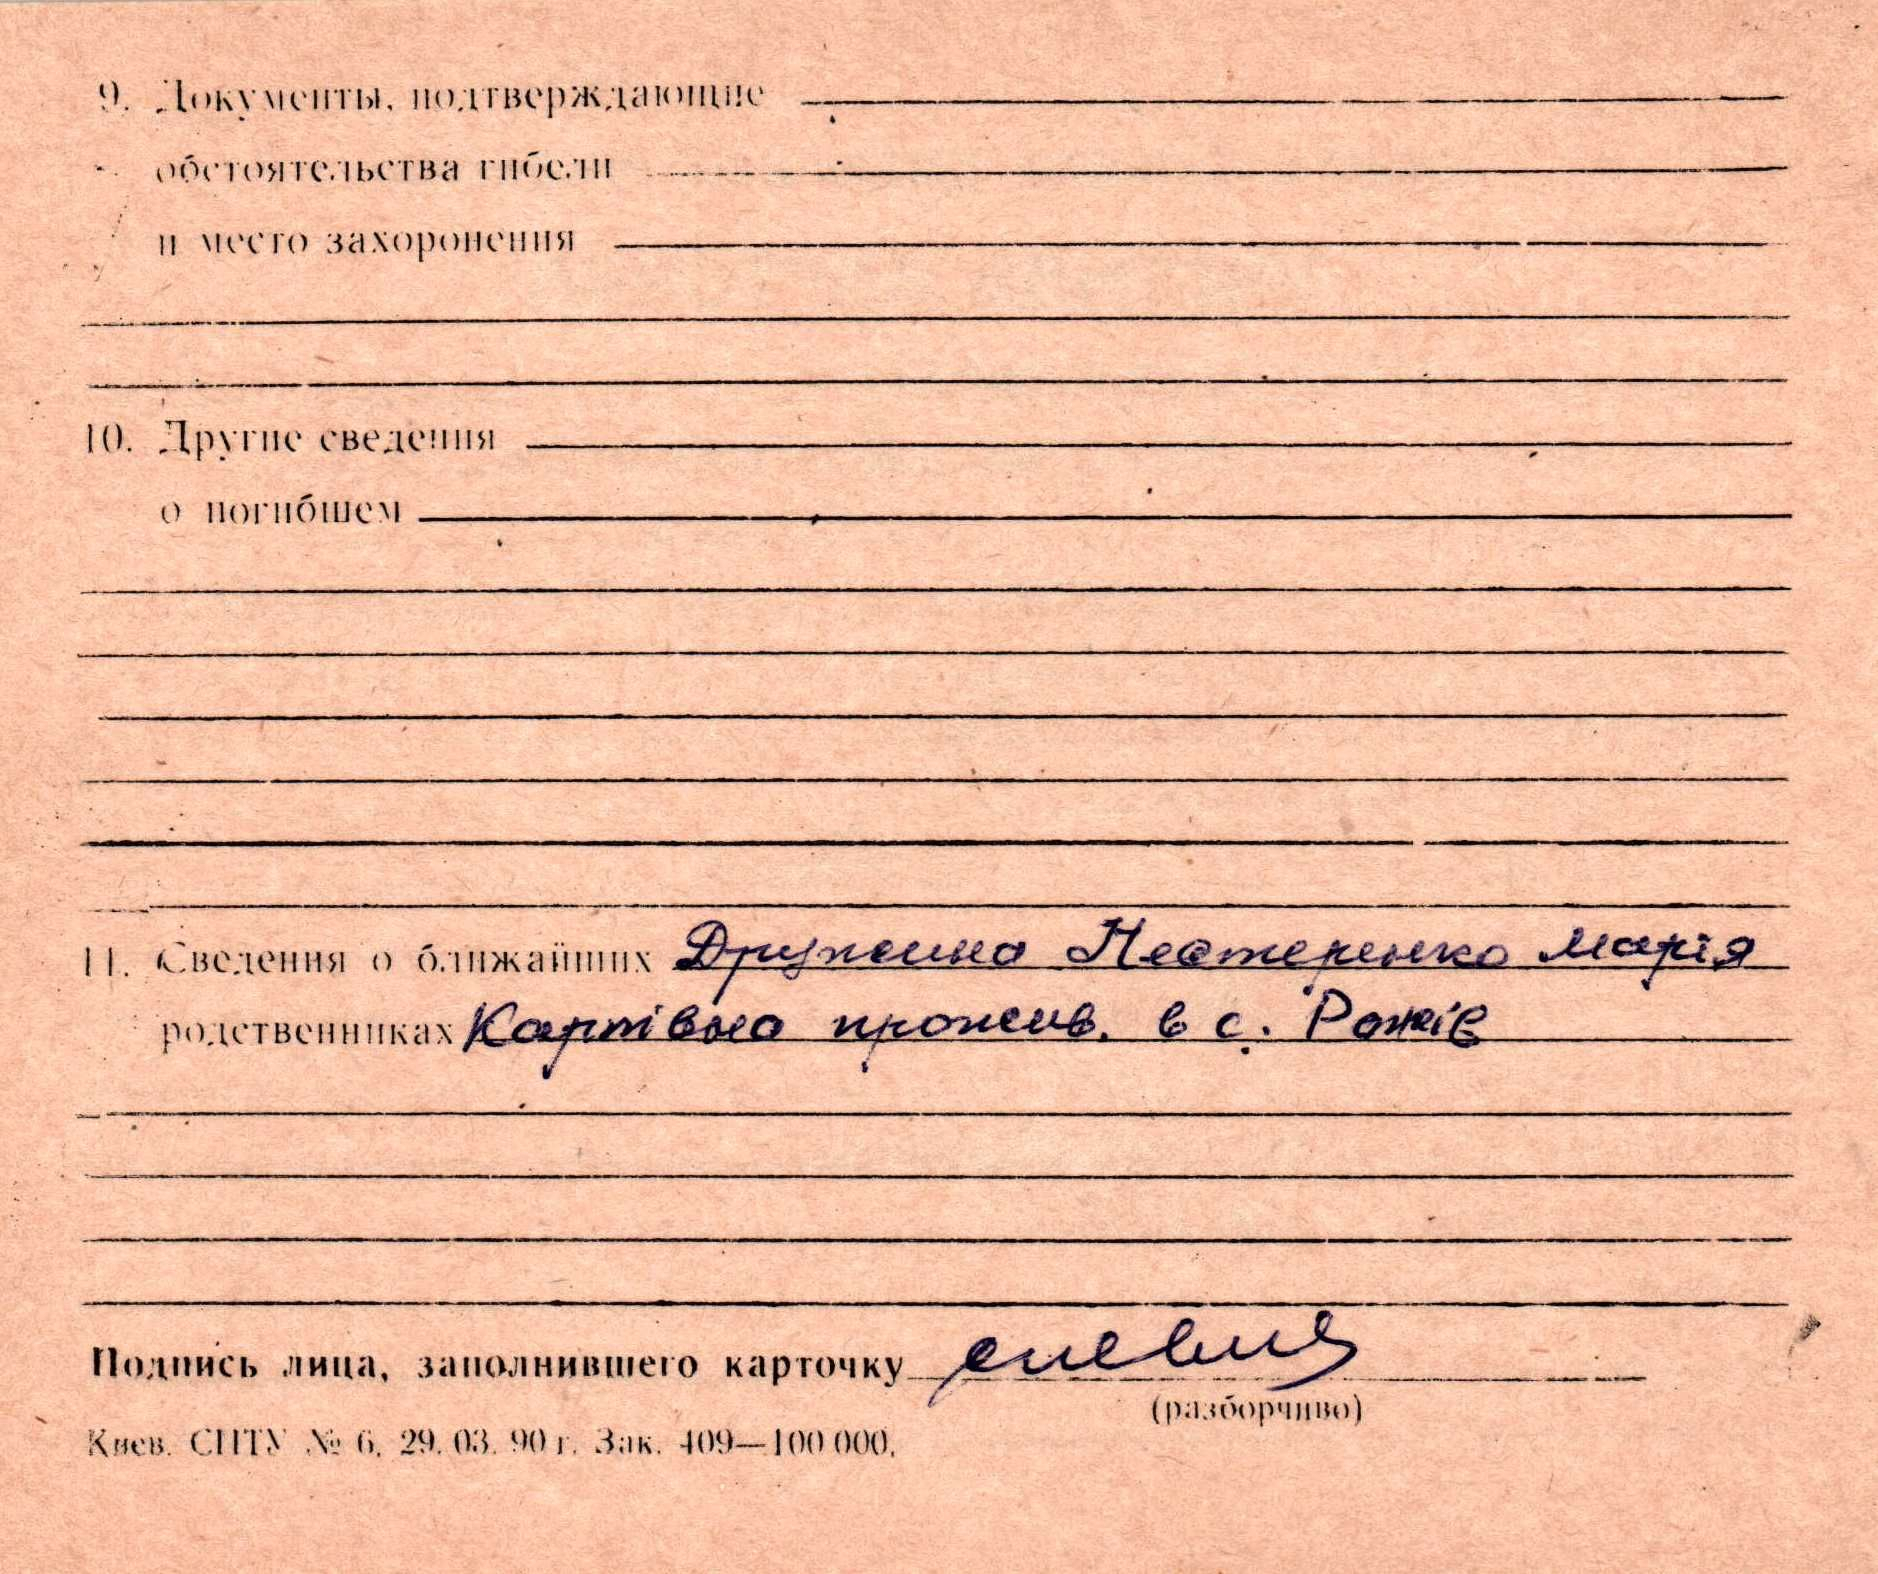 9. Документы, подтверждающие
обстоятельства гибели
и место захоронения
10. Другие сведения
о погибшем
11. Сведения о ближайших Дружина Нестеренко Марія
родственниках Карпівна прожив. в с. Рожів
Подпись лица, заполнившего карточку
(разборчиво)
Киев. СПТУ № 6. 29. 03. 90 г. Зак. 409—100 000.